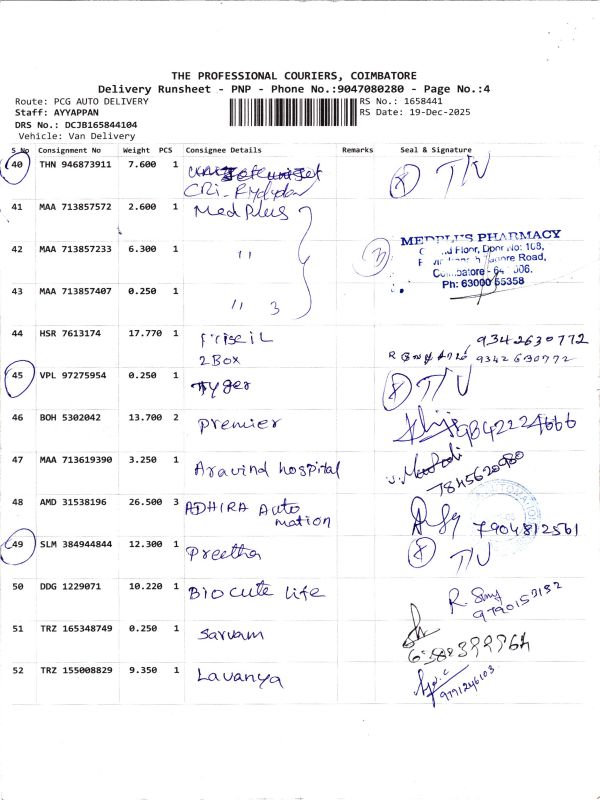 THE PROFESSIONAL COURIERS, COIMBATORE
Delivery Runsheet - PNP - Phone No.:9047080280 - Page No.:4
Route: PCG AUTO DELIVERY
RS No.: 1658441
Staff: AYYAPPAN
RS Date: 19-Dec-2025
DRS No.: DCJB165844104
Vehicle: Van Delivery
S.No Consignment No Weight PCS Consignee Details Remarks Seal & Signature
40 THN 946873911 7.600 1 T/V
CRI-
41 MAA 713857572 2.600 1 MedPlus
MEDPLUS PHARMACY
Floor, Door No: 108,
Road,
Coimbatore
Ph: 63000 55358
42 MAA 713857233 6.300 1 "
43 MAA 713857407 0.250 1 " 3
44 HSR 7613174 17.770 1 9342630772
2 Box 9342630772
45 VPL 97275954 0.250 1 Tyger T/V
46 BOH 5302042 13.700 2 Premier 9842224666
47 MAA 713619390 3.250 1 Aravind hospital
7845620980
48 AMD 31538196 26.500 3 ADHIRA Auto
mation 7904812561
49 SLM 384944844 12.300 1 Preetha T/V
50 DDG 1229071 10.220 1 Bio cute life R.
51 TRZ 165348749 0.250 1 Sarvam
52 TRZ 155008829 9.350 1 Lavanya
9791246103